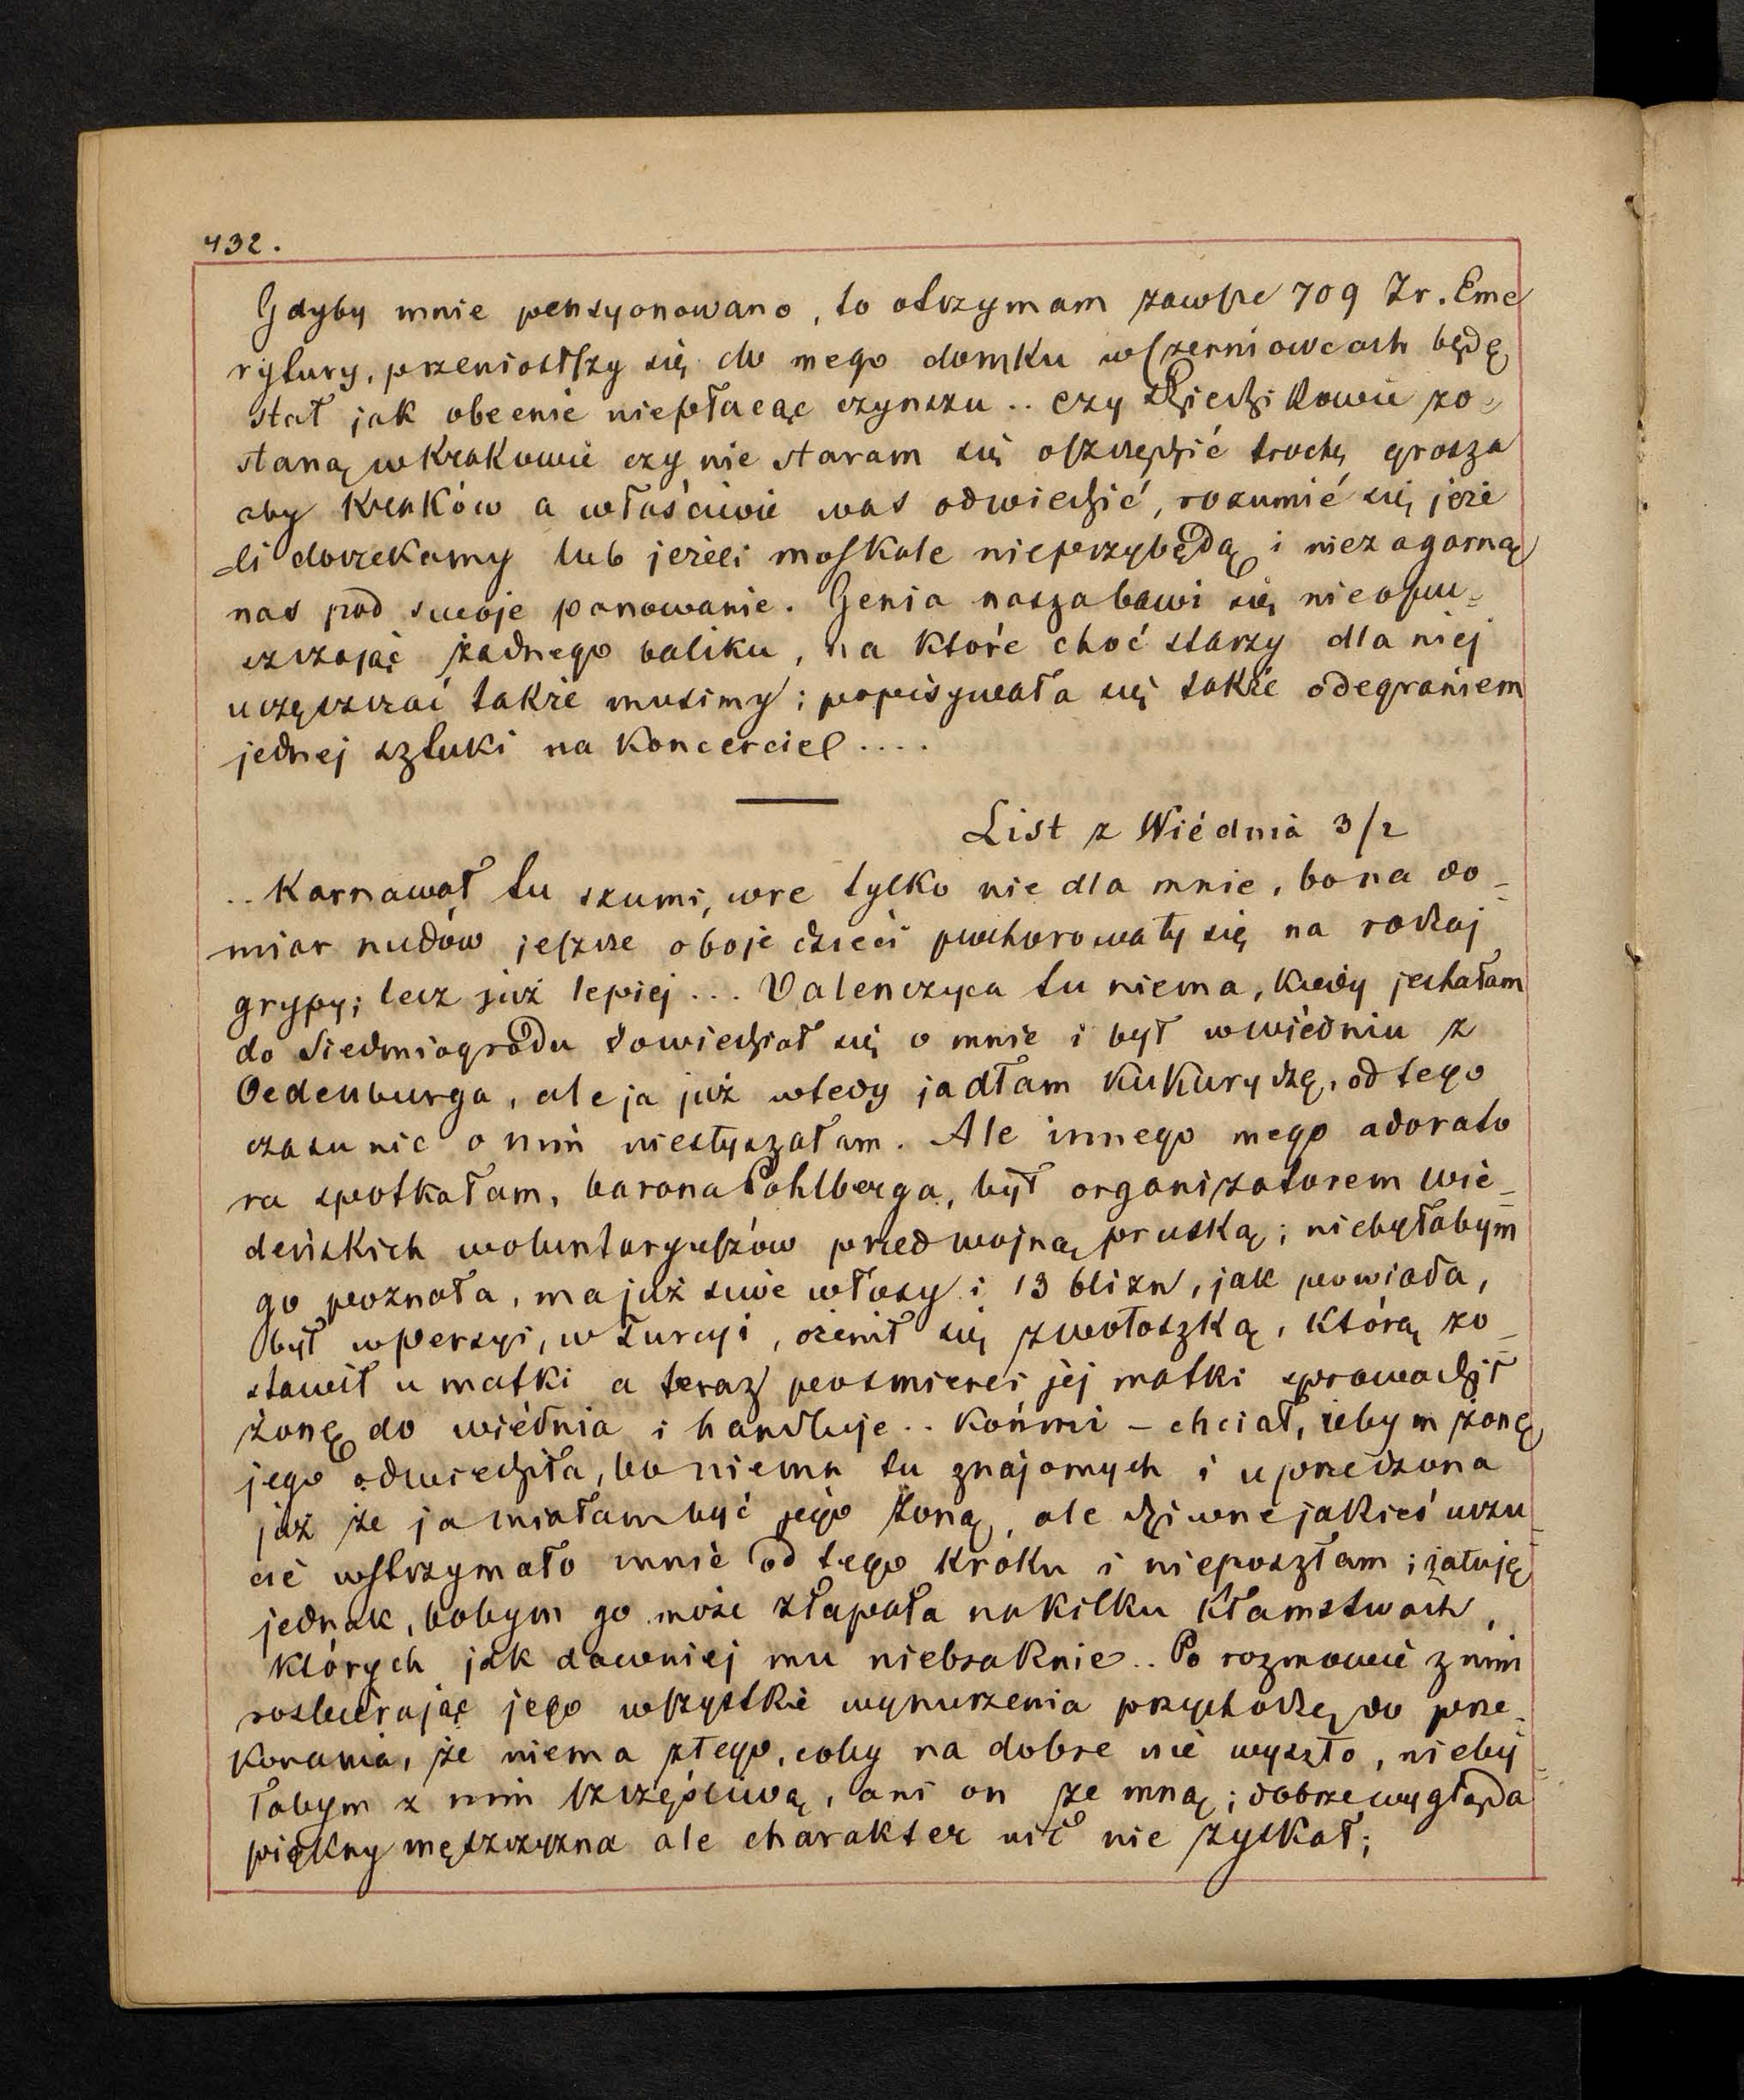 432.
Gdyby mnie pensyonowano, to otrzymam zawsze 709 Zr. Eme
rytury, przeniosłszy się do mego domku w Czerniowcach będę
stał jak obecnie niepłacąc czynszu .. czy Dziedzikowie zo-
staną w Krakowie czy nie staram się oszczędzić trochę grosza
aby Kraków a właściwie was odwiedzić, rozumić się jeże
li doczekamy lub jeżeli moskale nieprzybędą i niezagarną
nas pod swoje panowanie. Genia nasza bawi się nieopu-
szczając żadnego baliku, na które choć starzy dla niej
uczęszczać także musimy; popisywała się także odegraniem
jednej sztuki na koncercie ....
List z Wiédnia 3/2
.. Karnawał tu szumi, wre tylko nie dla mnie, bo na do-
miar nudów jeszcze oboje dzieci pochorowały się na rodzaj
grypy; lecz już lepiej ... Valenczyca tu niema, kiedy jechałam
do Siedmiogrodu dowiedział się o mnie i był w wiédniu z
Oedenburga, ale ja już wtedy jadłam kukurydzę, od tego
czasu nic o nim niesłyszałam. Ale innego mego adorato
ra spotkałam, barona Pohlberga, był organizatorem wie-
deńskich woluntaryuszów przed wojną pruską; niebyłabym
go poznała, ma już siwe włosy i 13 blizn, jak powiada,
był w Persyi, w Turcyi, ożenił się z wołoszką, którą zo-
stawił u matki a teraz po śmierci jéj matki sprowadził
żonę do wiédnia i handluje .. końmi – chciał, żebym żonę
jego odwiedziła, bo niema tu znajomych i uprzedzona
już że ja miałam być jego żoną, ale dziwne jakieś uczu-
cie wstrzymało mnie od tego kroku i nieposzłam; żałuję
jednak, bobym go może złapała na kilku kłamstwach,
których jak dawniej mu niebraknie .. Po rozmowie z nim
rozbierając jego wszystkie wynurzenia przychodzę do prze-
konania, że niema złego, coby na dobre nie wyszło, nieby-
łabym z nim szczęśliwą, ani on ze mną; dobrze wygląda
piękny męszczyzna ale charakter nic nie zyskał;